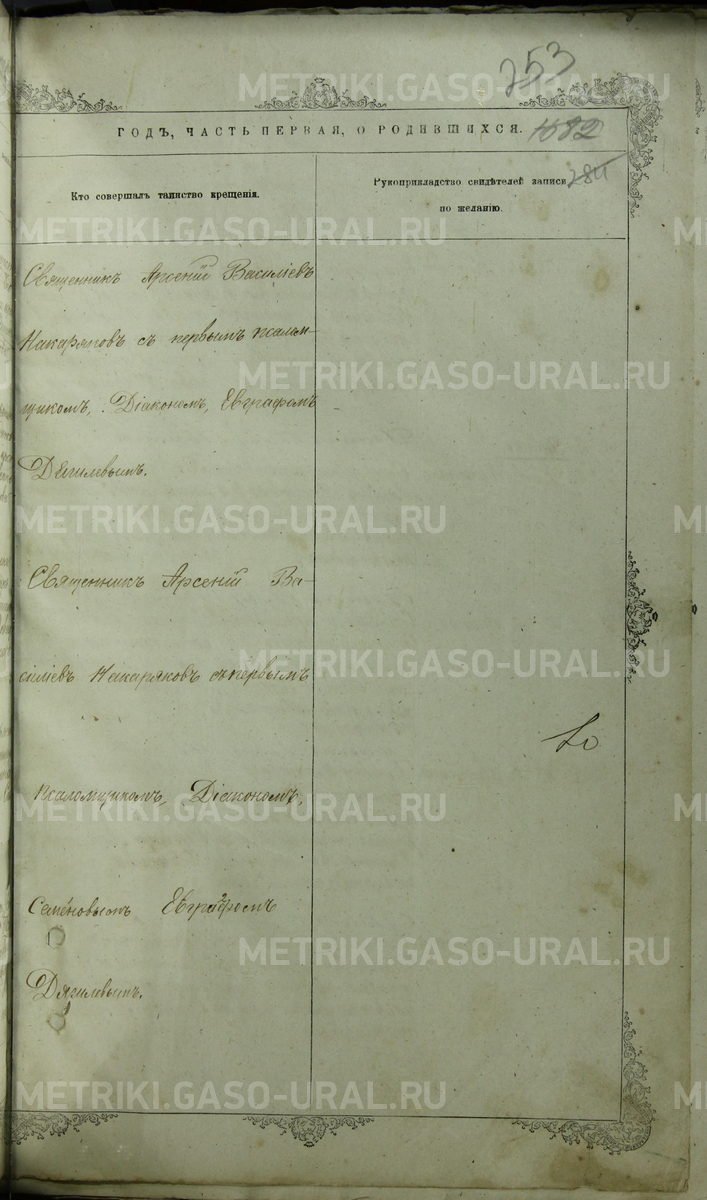 253
ГОДЪ, ЧАСТЬ ПЕРВАЯ, О РОДИВШИХСЯ.
Кто совершалъ таинство крещенія.
Рукоприкладство свидѣтелей записи
по желанію.
Священникъ Арсеній Василіевъ
Накаряковъ съ первымъ псалом-
щикомъ, Діакономъ, Евграфомъ
Дягилевымъ.
Священникъ Арсеній Ва-
силіевъ Накаряковъ съ первымъ
псаломщикомъ, Діакономъ,
Семеновымъ Евграфомъ
Дягилевымъ.
METRIKI.GASO-URAL.RU
METRIKI.GASO-URAL.RU
METRIKI.GASO-URAL.RU
METRIKI.GASO-URAL.RU
METRIKI.GASO-URAL.RU
METRIKI.GASO-URAL.RU
METRIKI.GASO-URAL.RU
METRIKI.GASO-URAL.RU